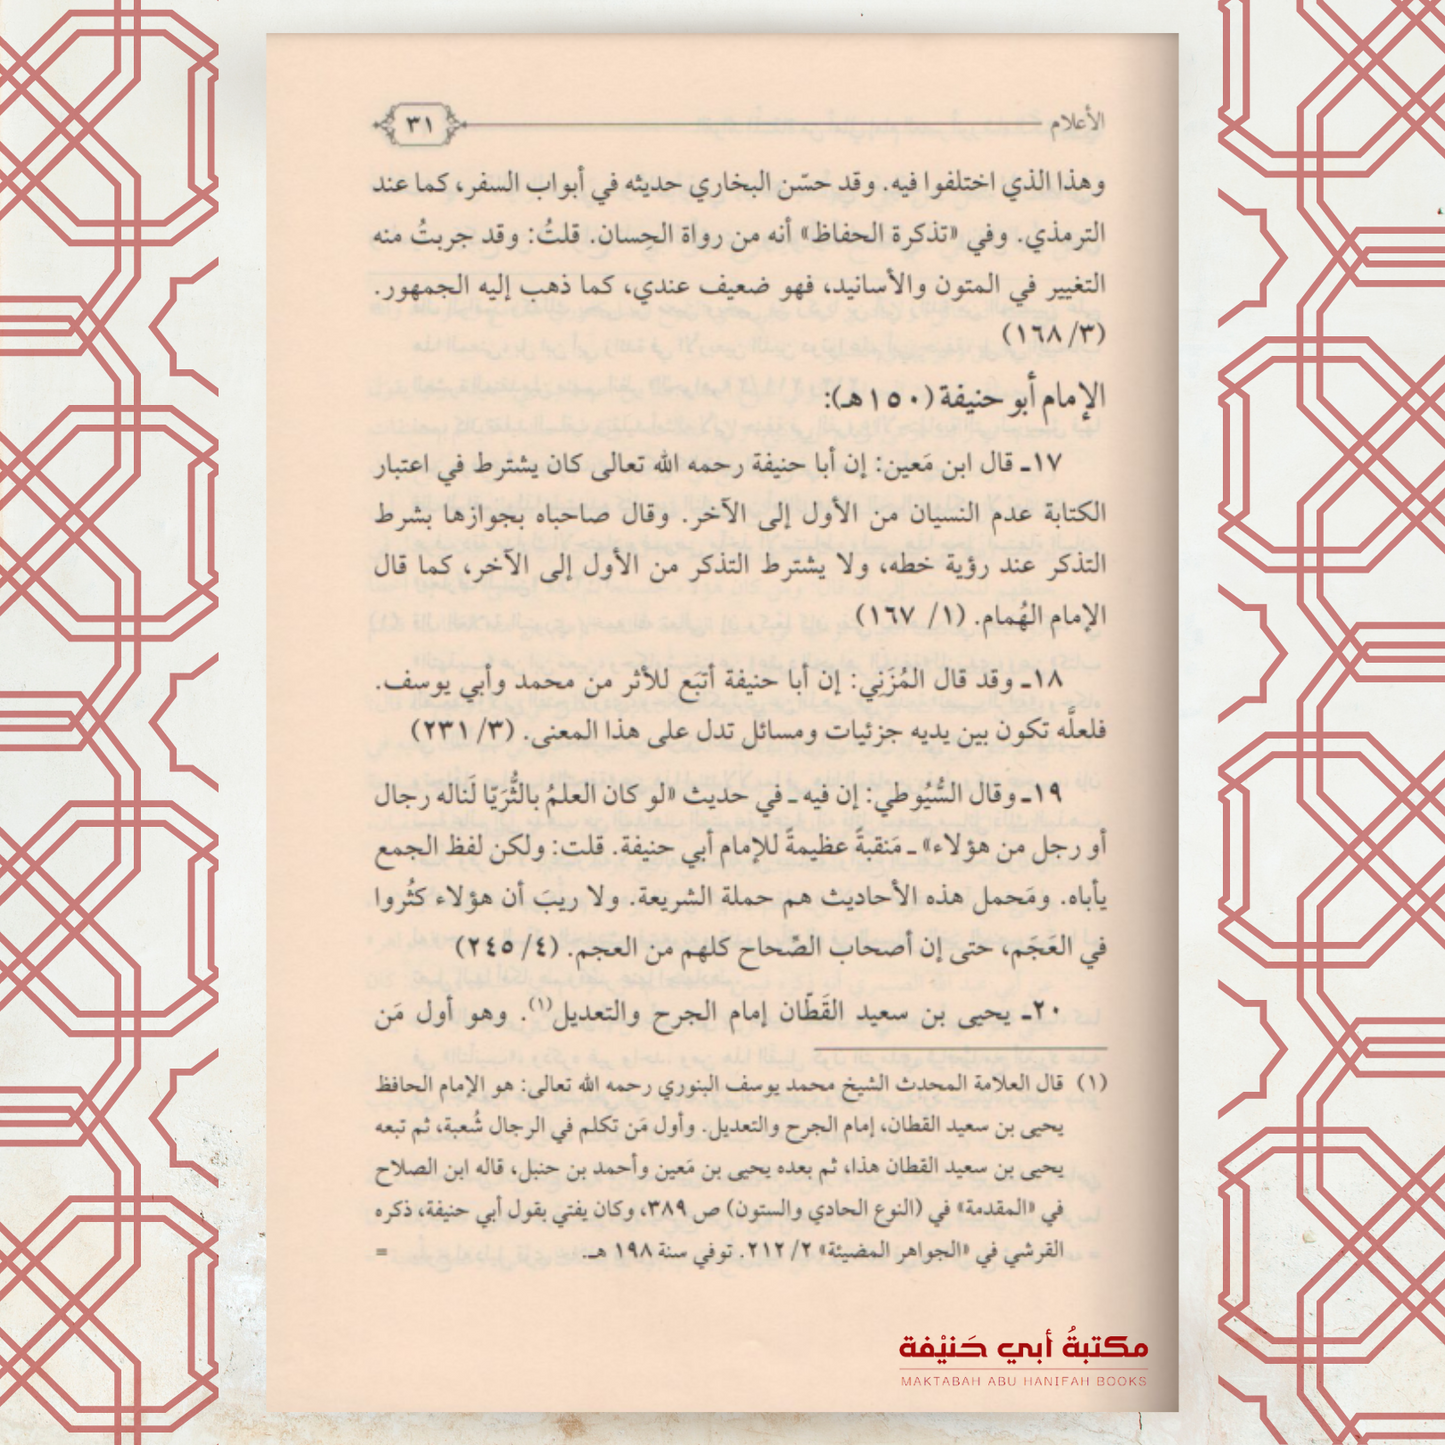 الأعلام
٣١
وهذا الذي اختلفوا فيه. وقد حسّن البخاري حديثه في أبواب السفر، كما عند
الترمذي. وفي «تذكرة الحفاظ» أنه من رواة الحِسان. قلتُ: وقد جربتُ منه
التغيير في المتون والأسانيد، فهو ضعيف عندي، كما ذهب إليه الجمهور.
(٣/ ١٦٨)
الإمام أبو حنيفة (١٥٠هـ):
١٧ـ قال ابن مَعين: إن أبا حنيفة رحمه الله تعالى كان يشترط في اعتبار
الكتابة عدم النسيان من الأول إلى الآخر. وقال صاحباه بجوازها بشرط
التذكر عند رؤية خطه، ولا يشترط التذكر من الأول إلى الآخر، كما قال
الإمام الهُمام. (١/ ١٦٧)
١٨ـ وقد قال المُزَنِي: إن أبا حنيفة أتبَع للأثر من محمد وأبي يوسف.
فلعلَّه تكون بين يديه جزئيات ومسائل تدل على هذا المعنى. (٣/ ٢٣١)
١٩ـ وقال السُّيُوطي: إن فيه ـ في حديث «لو كان العلمُ بالثُّرَيّا لَناله رجال
أو رجل من هؤلاء» ـ مَنقبةً عظيمةً للإمام أبي حنيفة. قلت: ولكن لفظ الجمع
يأباه. ومَحمل هذه الأحاديث هم حملة الشريعة. ولا ريبَ أن هؤلاء كثُروا
في العَجَم، حتى إن أصحاب الصِّحاح كلهم من العجم. (٤/ ٢٤٥)
٢٠ـ يحيى بن سعيد القَطّان إمام الجرح والتعديل(١). وهو أول مَن
(١) قال العلامة المحدث الشيخ محمد يوسف البنوري رحمه الله تعالى: هو الإمام الحافظ
يحيى بن سعيد القطان، إمام الجرح والتعديل. وأول مَن تكلم في الرجال شُعبة، ثم تبعه
يحيى بن سعيد القطان هذا، ثم بعده يحيى بن مَعين وأحمد بن حنبل، قاله ابن الصلاح
في «المقدمة» في (النوع الحادي والستون) ص ٣٨٩، وكان يفتي بقول أبي حنيفة، ذكره
القرشي في «الجواهر المضيئة» ٢/ ٢١٢. توفي سنة ١٩٨ هـ. =
مكتبةُ أبي حَنيْفة
MAKTABAH ABU HANIFAH BOOKS